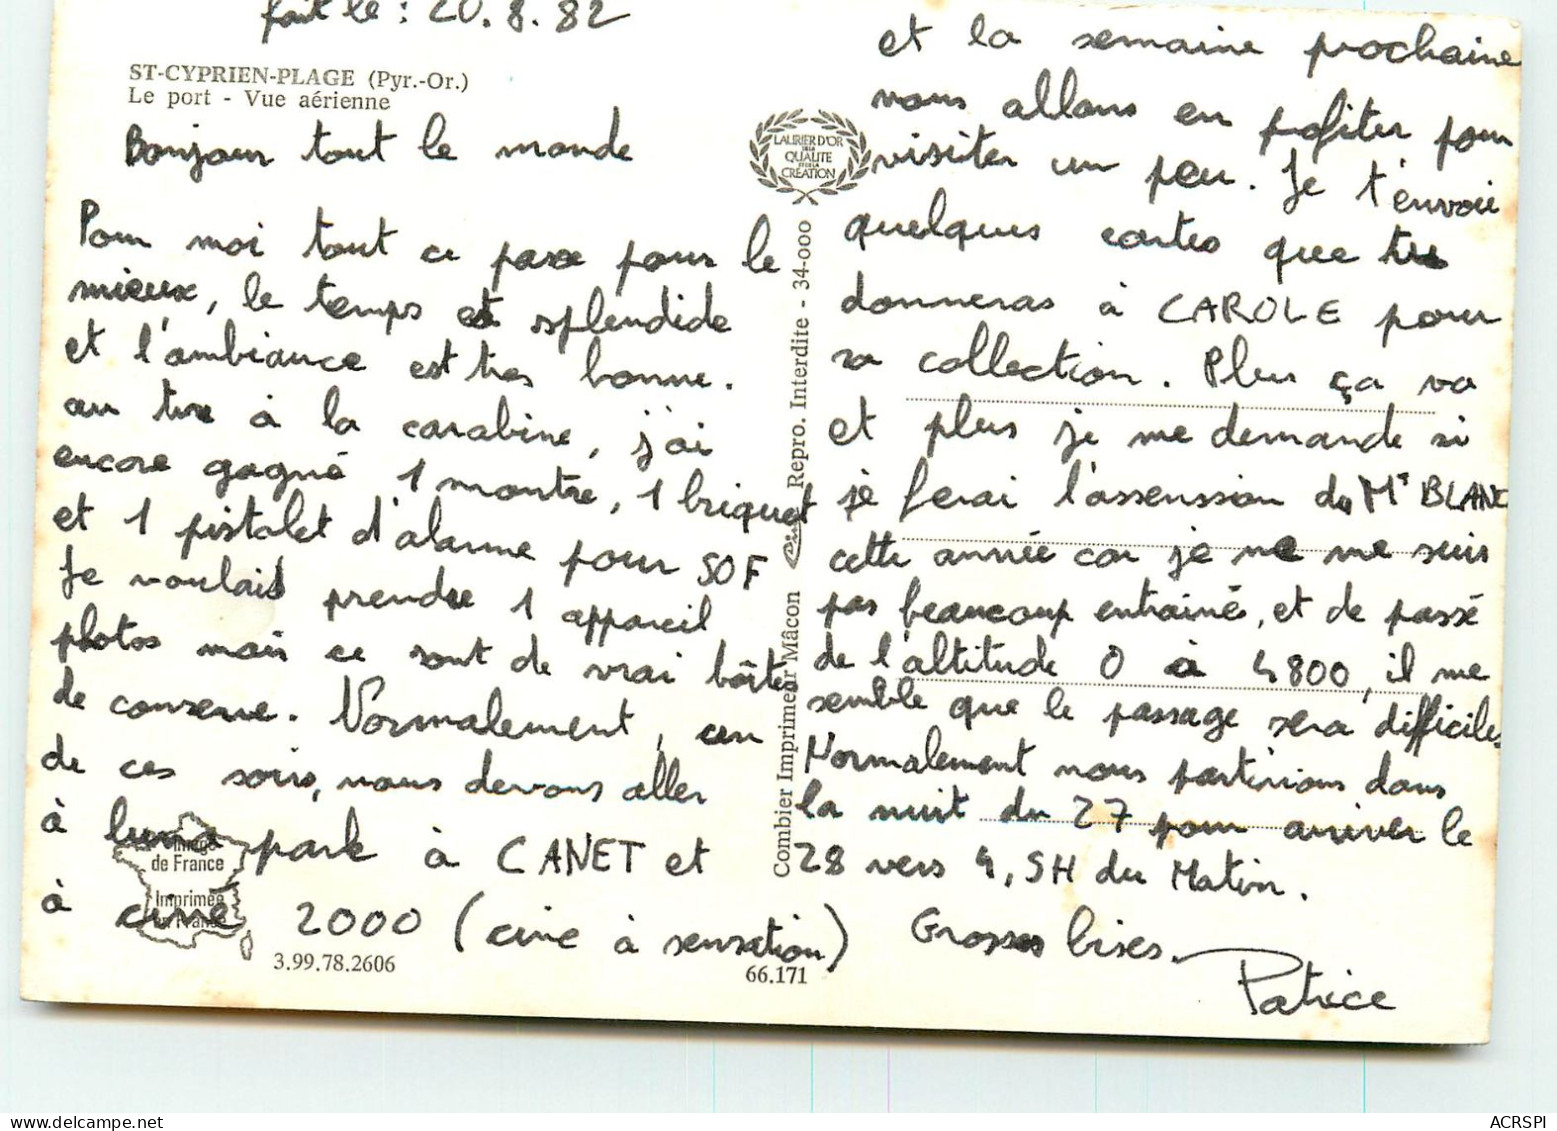 fait le : 20.8.82
ST-CYPRIEN-PLAGE (Pyr.-Or.)
Le port - Vue aérienne
Bonjour tout le monde
Pour moi tout ce passe pour le
mieux, le temps est splendide
et l'ambiance est très bonne.
au tir à la carabine, j'ai
encore gagné 1 montre, 1 briquet
et 1 pistolet d'alarme pour SOF
Je voulais prendre 1 appareil
photos mais ce sont de vrai boîtes
de conserve. Normalement, un
de ces soirs, nous devons aller
à luna park à CANET et
à ciné 2000 (cine à sensation)
Image
de France
Imprimée
en France
3.99.78.2606
66.171
LAURIER D'OR
DE LA
QUALITE
ET DE LA
CREATION
Combier Imprimeur Mâcon
Repro. Interdite - 34-000
et la semaine prochaine
nous allons en profiter pour
visiter un peu. Je t'envoie
quelques cartes que tu
donneras à CAROLE pour
sa collection. Plus ça va
et plus je me demande si
je ferai l'assenssion du Mt BLANC
cette année car je ne me suis
pas beaucoup entrainé, et de passé
de l'altitude 0 à 4800, il me
semble que le passage sera difficile.
Normalement nous partirions dans
la nuit du 27 pour arriver le
28 vers 4,5H du Matin.
Grosses bises.
Patrice
ACRSPI